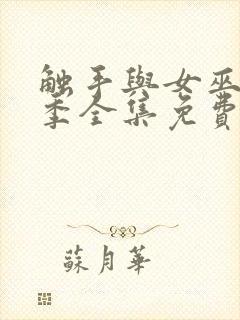 觸手與女巫
季全集免費
蘇月華